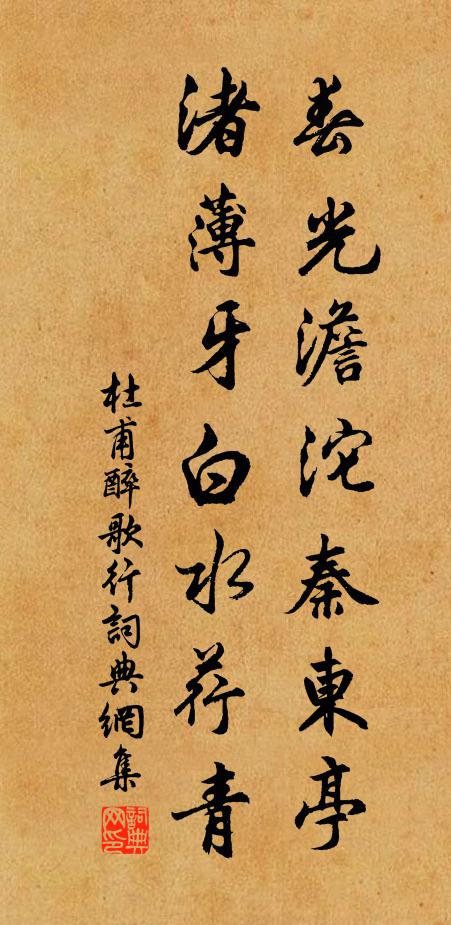 春光澹沱秦東亭
渚薄牙白水荇青
杜甫醉歌行詞典網集
詞典
网印